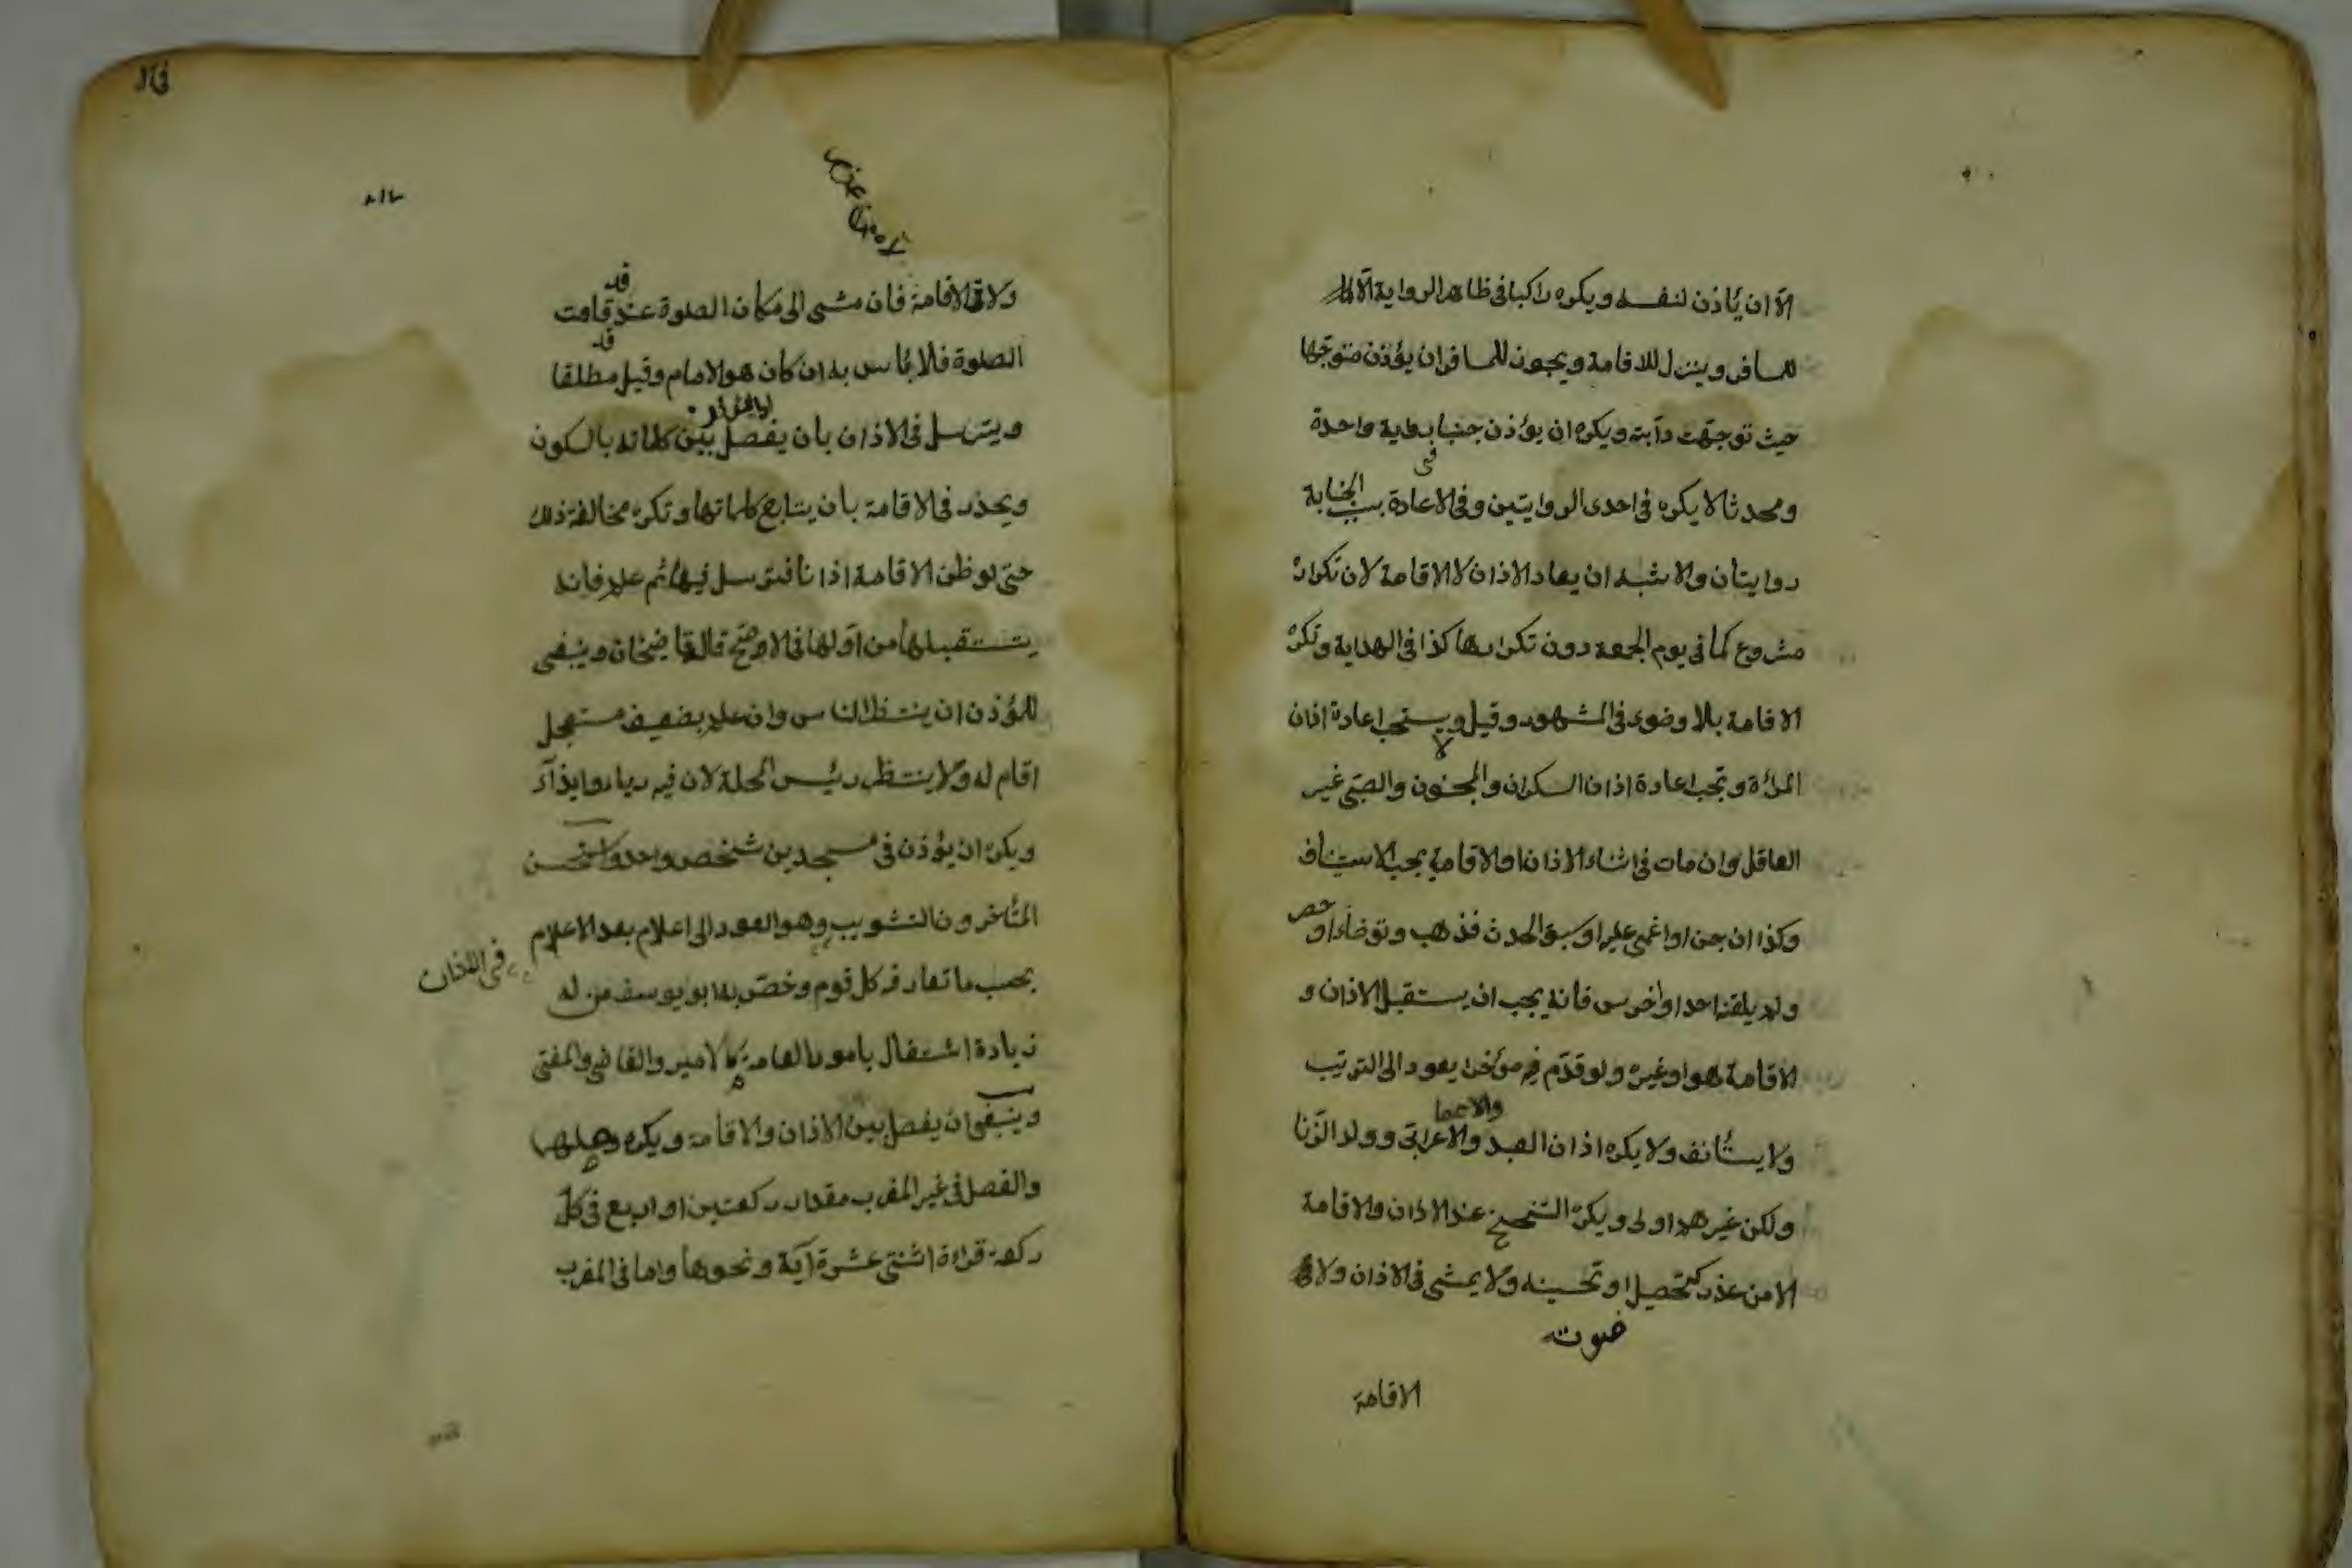 الا ان يأذن لنفسه ويكره راكبا في ظاهر الرواية الا
للمسافر وينزل للاقامة ويجوز للمسافر ان يؤذن متوجها
حيث توجهت دابته ويكره ان يؤذن جنبا برواية واحدة
ومحدثا لا يكره في احدى الروايتين وفي الاعادة بسبب الجنابة
في
روايتان والاشبه ان يعاد الاذان لا الاقامة لان تكراره
مشروع كما في يوم الجمعة دون تكرارها كذا في الهداية وتكره
الاقامة بلا وضوء في المشهور وقيل لا ويستحب اعادة اذان
المرأة وتجب اعادة اذان السكران والمجنون والصبي غير
العاقل وان مات في اثناء الاذان او الاقامة يجب الاستيناف
وكذا ان جن او اغمي عليه او سبق الحدث فذهب وتوضاء او حصر
ولم يلقنه احد او اخرس فانه يجب ان يستقبل الاذان و
الاقامة هو او غيره ولو قدم فيه مؤخرا يعود الى الترتيب
والاعما
ولا يستأنف ولا يكره اذان العبد والاعرابي وولد الزنا
ولكن غيرهم اولى ويكره التنحنح عند الاذان والاقامة
الا من عذر كتحصيل او تحسينه ولا يمشي في الاذان ولا في
صوت
الاقامة
قد
ولا في الاقامة فان مشى الى مكان الصلوة عند قامت
قد
الصلوة فلا بأس به ان كان هو الامام وقيل مطلقا
ويترسل في الاذان بان يفصل بين كلماته بالسكون
ويحدر في الاقامة بان يتابع كلماتها وتكره مخالفة ذلك
حتى لو ظن الاقامة اذانا فترسل فيها ثم علم فانه
يستقبلها من اولها في الاصح قال قاضيخان وينبغي
للمؤذن ان ينتظر الناس وان علم بضعيف مستعجل
اقام له ولا ينتظر رئيس المحلة لان فيه رياء وايذاء
ويكره ان يؤذن في مسجدين شخص واحد واستحسن
المتأخرون التثويب وهو العود الى اعلام بعد الاعلام
في الاذان
بحسب ما تعارف كل قوم وخص به ابو يوسف من له
زيادة اشتغال بامور العامة كالامير والقاضي والمفتي
وينبغي ان يفصل بين الاذان والاقامة ويكره وصلهما
والفصل في غير المغرب مقدار ركعتين او اربع في كل
ركعة قراءة اثنتي عشرة آية ونحوها واما في المغرب